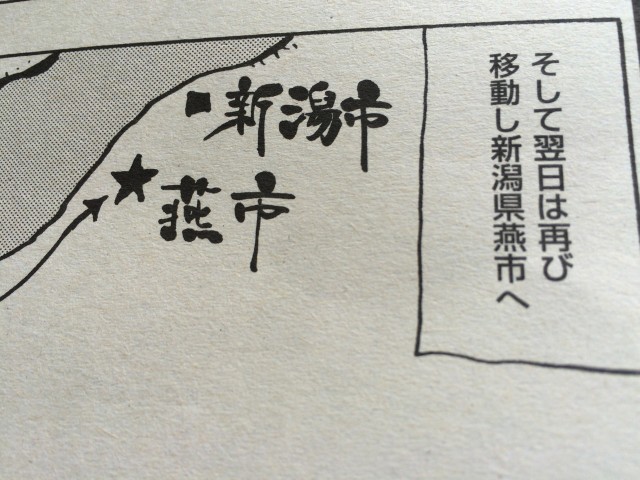 そして翌日は再び
移動し新潟県燕市へ
新潟市
燕市